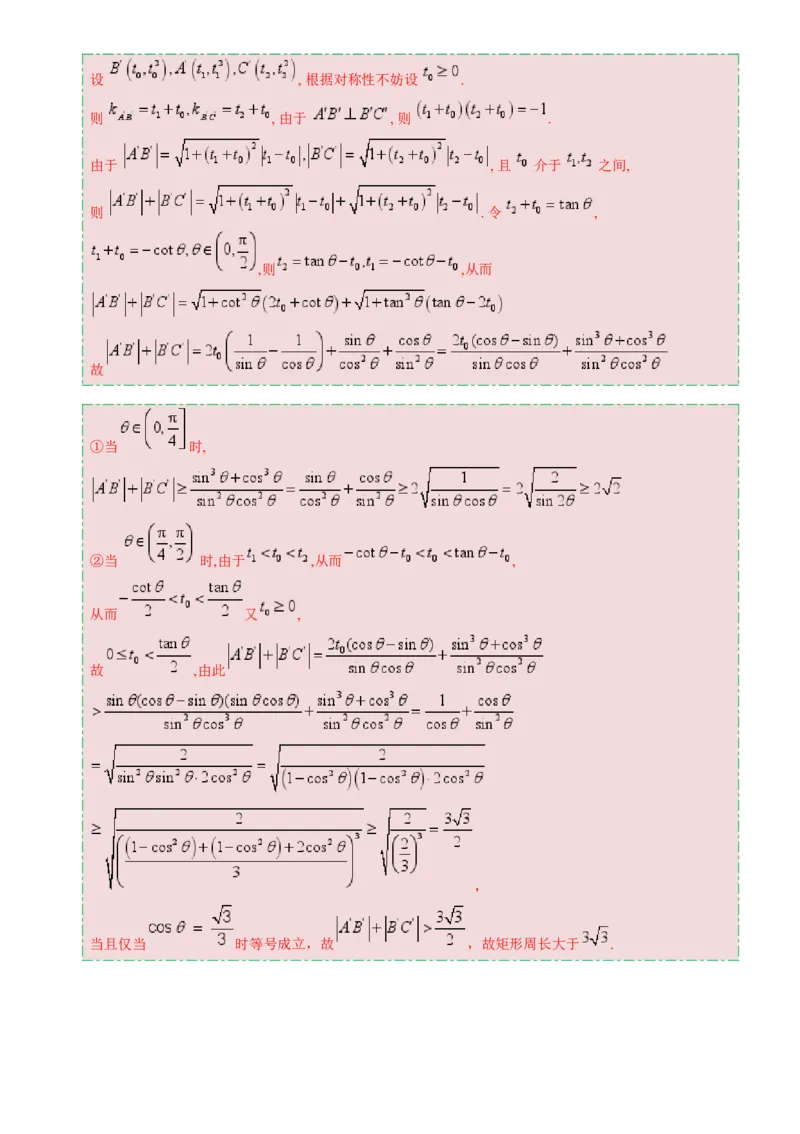 设 B′(t₀,t₀²),A′(t₁,t₁²),C′(t₂,t₂²),根据对称性不妨设 t₀≥0.
则 k_{A′B′}=t₁+t₀,k_{B′C′}=t₂+t₀,由于 A′B′⊥B′C′,则 (t₁+t₀)(t₂+t₀)=−1.
由于 |A′B′|=√(1+(t₁+t₀)²)|t₁−t₀|,|B′C′|=√(1+(t₂+t₀)²)|t₂−t₀|,且 t₀ 介于 t₁,t₂ 之间,
则 |A′B′|+|B′C′|=√(1+(t₁+t₀)²)|t₁−t₀|+√(1+(t₂+t₀)²)|t₂−t₀|.令 t₂+t₀=tanθ,
t₁+t₀=−cotθ,θ∈(0,π/2),则 t₂=tanθ−t₀,t₁=−cotθ−t₀,从而
|A′B′|+|B′C′|=√(1+cot²θ)(2t₀+cotθ)+√(1+tan²θ)(tanθ−2t₀)
故 |A′B′|+|B′C′|=2t₀(1/sinθ−1/cosθ)+sinθ/cos²θ+cosθ/sin²θ=2t₀(cosθ−sinθ)/(sinθcosθ)+(sin³θ+cos³θ)/(sin²θcos²θ)
①当 θ∈(0,π/4] 时,
|A′B′|+|B′C′|≥(sin³θ+cos³θ)/(sin²θcos²θ)=sinθ/cos²θ+cosθ/sin²θ≥2√(1/(sinθcosθ))=2√(2/sin2θ)≥2√2
②当 θ∈(π/4,π/2) 时,由于 t₁<t₀<t₂,从而 −cotθ−t₀<t₀<tanθ−t₀,
从而 −cotθ/2<t₀<tanθ/2 又 t₀≥0,
故 0≤t₀<tanθ/2,由此 |A′B′|+|B′C′|=2t₀(cosθ−sinθ)/(sinθcosθ)+(sin³θ+cos³θ)/(sin²θcos²θ)
>sinθ(cosθ−sinθ)(sinθcosθ)/(sin²θcos³θ)+(sin³θ+cos³θ)/(sin²θcos²θ)=1/cosθ+cosθ/sin²θ
=√(2/(sin²θsin²θ·2cos²θ))=√(2/((1−cos²θ)(1−cos²θ)·2cos²θ))
≥√(2/(((1−cos²θ)+(1−cos²θ)+2cos²θ)/3)³)≥√(2/(2/3)³)=3√3/2,
当且仅当 cosθ=√3/3 时等号成立，故 |A′B′|+|B′C′|>3√3/2，故矩形周长大于 3√3.